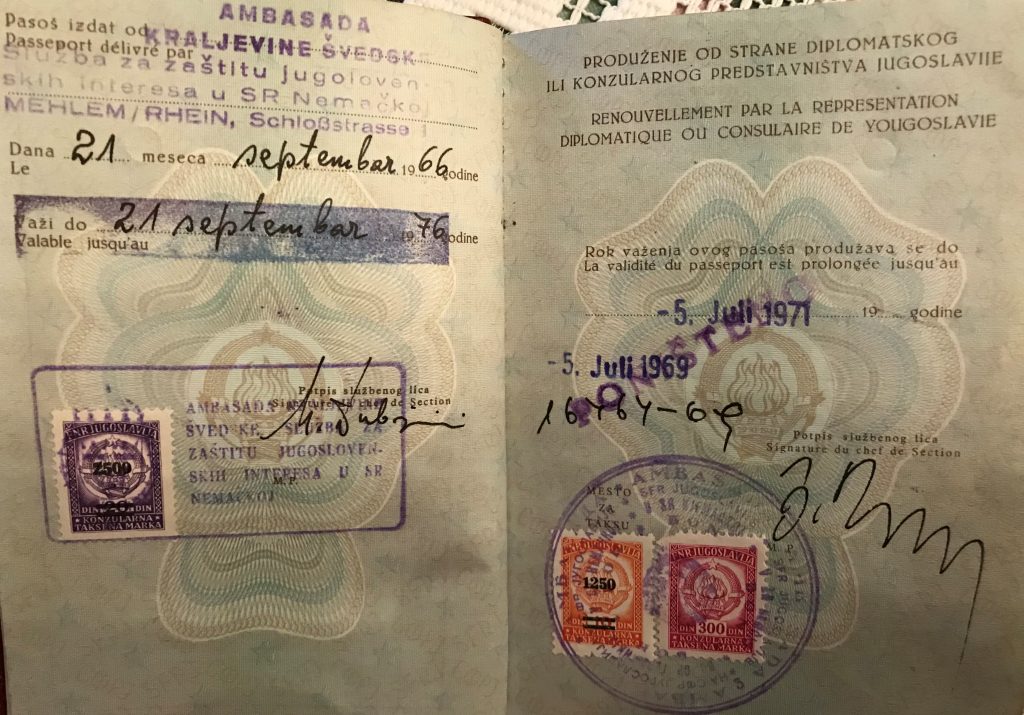 AMBASADA
Pasoš izdat od KRALJEVINE ŠVEDSK
Passeport délivré par
Služba za zaštitu jugosloven
skih interesa u SR Nemačkoj
MEHLEM/RHEIN, Schloßstrasse 1
Dana 21 meseca septembar 1966 godine
Le
Važi do 21 septembar 1976 godine
Valable jusqu'au
Potpis službenog lica
Signature du chef de Section
AMBASADA
ŠVEDSKE, SLUŽBA ZA
ZAŠTITU JUGOSLOVEN-
SKIH INTERESA U SR
NEMAČKOJ
M. P.
FNR JUGOSLAVIJA
2500
DIN DIN
KONZULARNA
TAKSENA MARKA
PRODUŽENJE OD STRANE DIPLOMATSKOG
ILI KONZULARNOG PREDSTAVNIŠTVA JUGOSLAVIJE
RENOUVELLEMENT PAR LA REPRESENTATION
DIPLOMATIQUE OU CONSULAIRE DE YOUGOSLAVIE
Rok važenja ovog pasoša produžava se do
La validité du passeport est prolongée jusqu'au
-5. Juli 1971 19 godine
PONIŠTENO
-5. Juli 1969
16464-69
Potpis službenog lica
Signature du chef de Section
MESTO
ZA
TAKSU
M. P.
AMBASADA SFR JUGOSLAVIJE
FNR JUGOSLAVIJA
1250
DIN DIN
KONZULARNA
TAKSENA MARKA
FNR JUGOSLAVIJA
DIN 300 DIN
KONZULARNA
TAKSENA MARKA